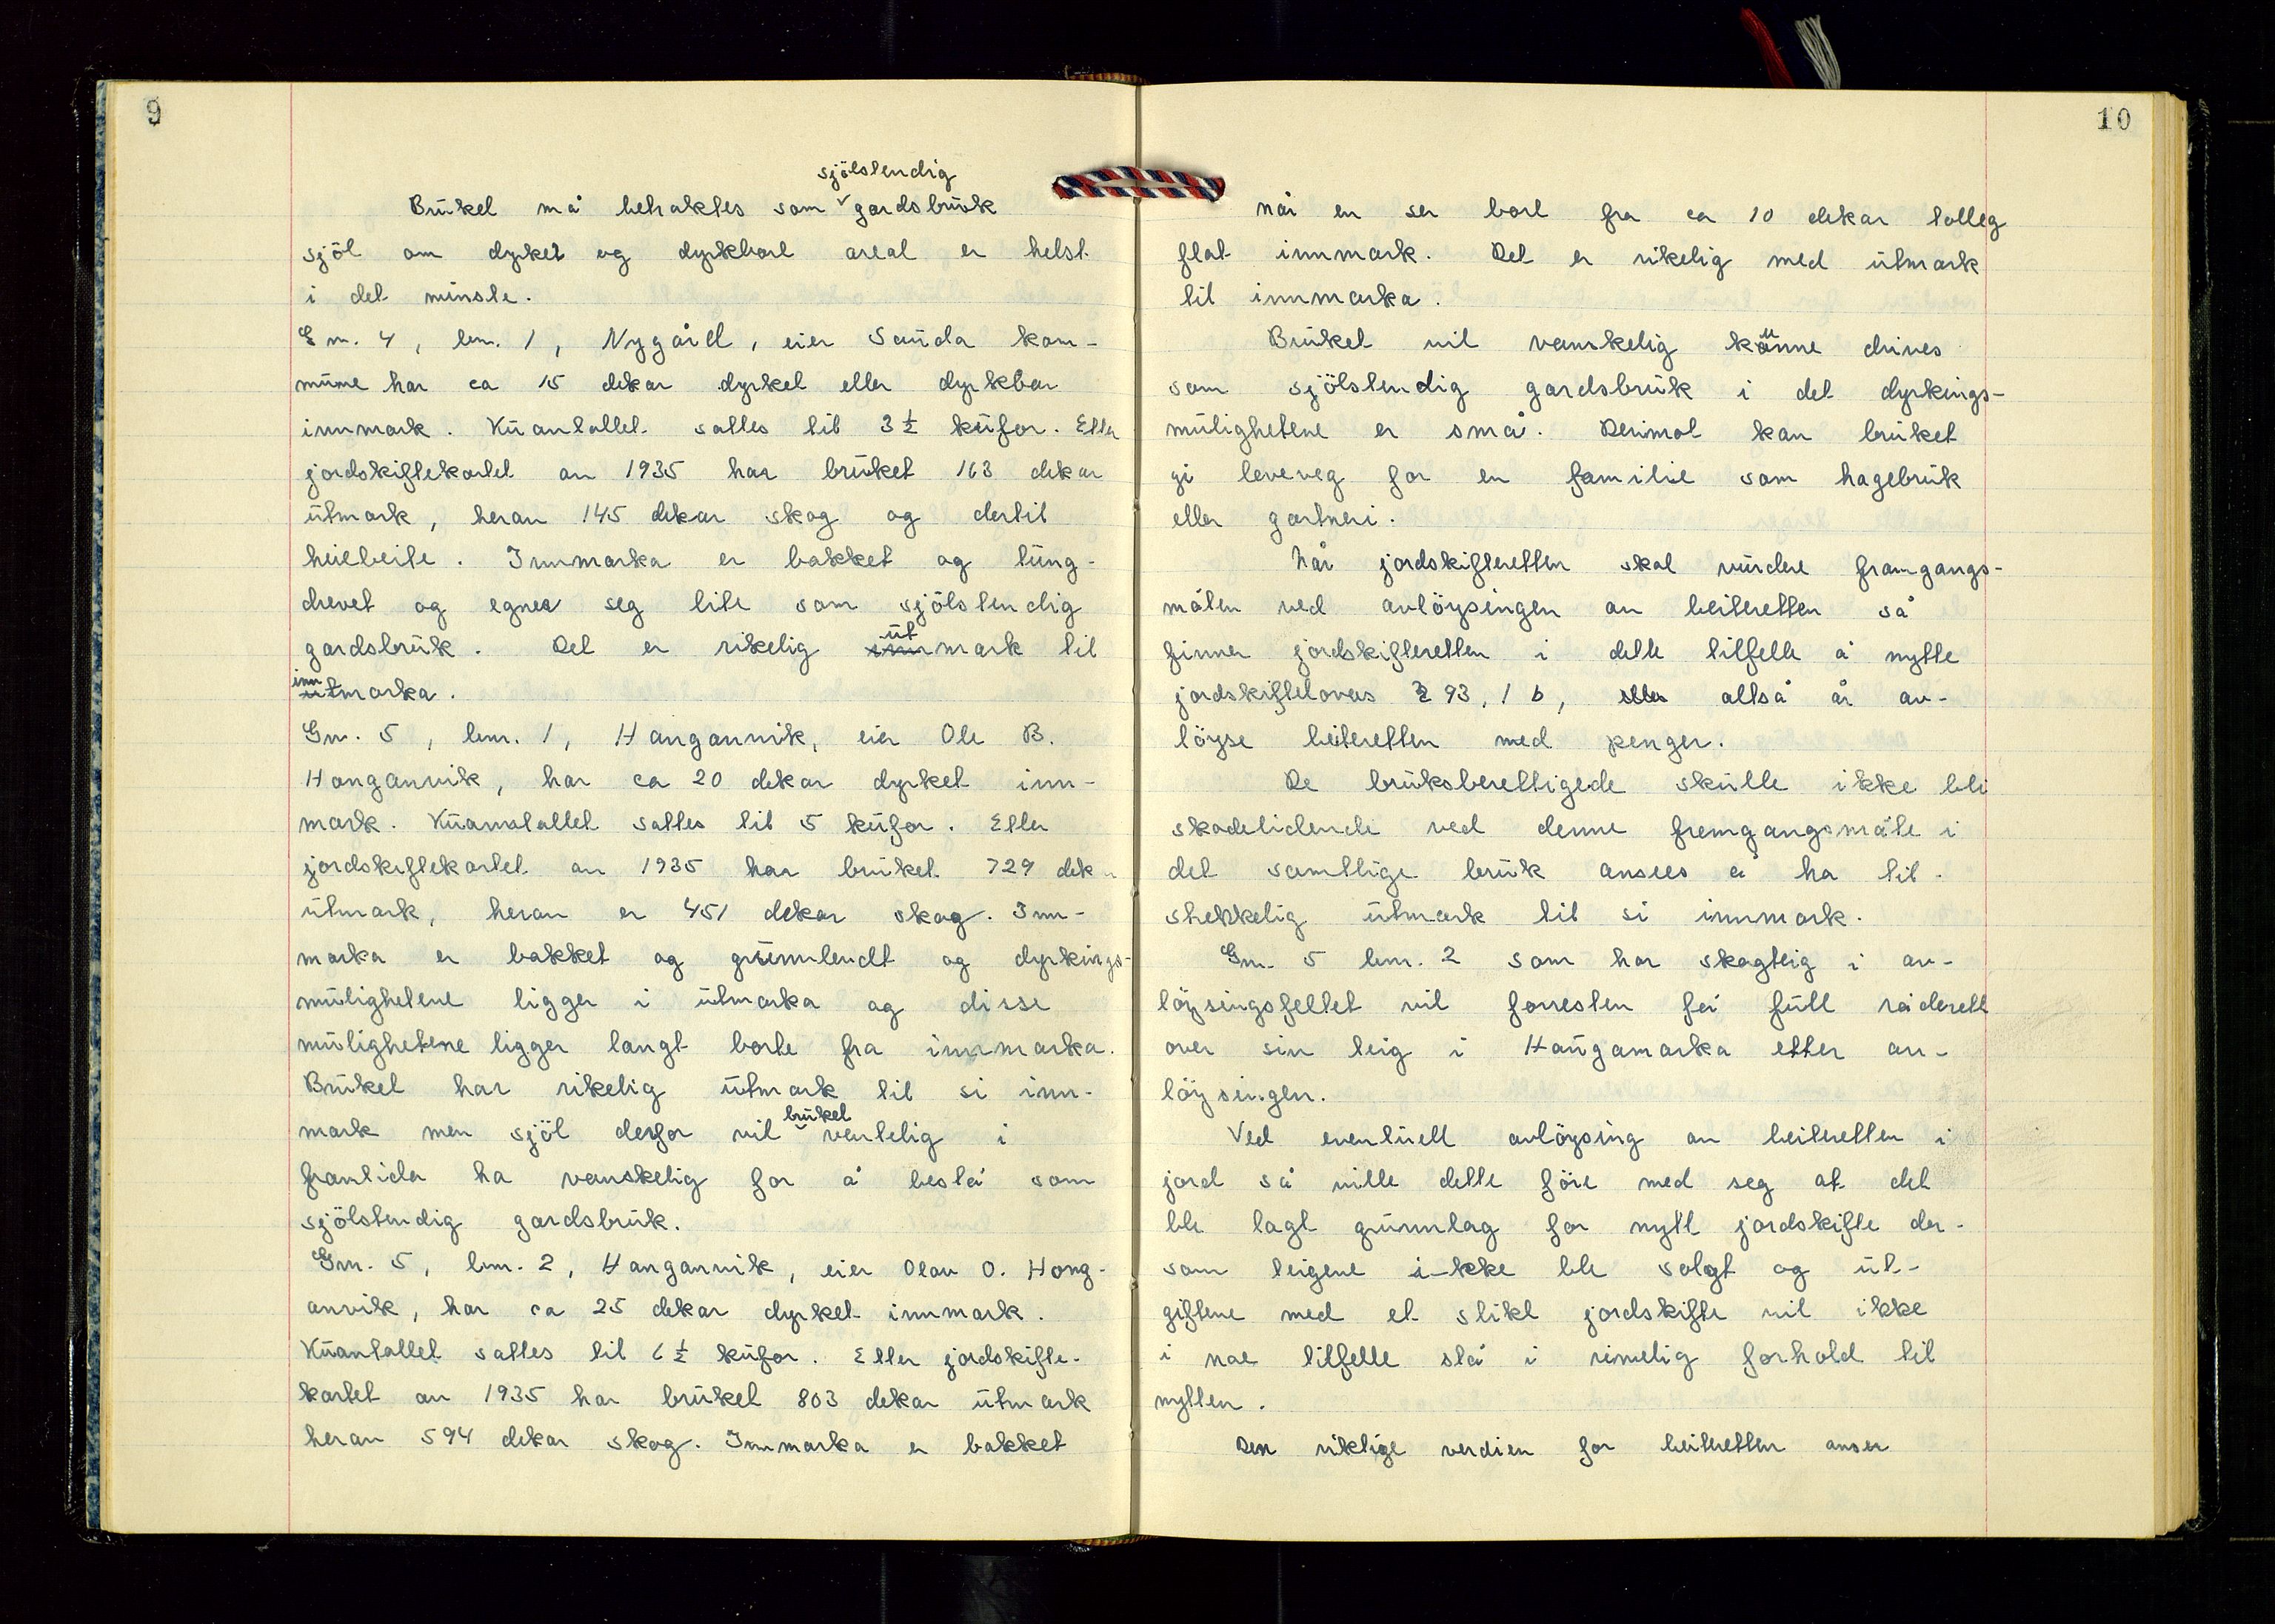 9
sjölstendig
Bruket må betraktes som gardsbruk
sjöl om dyrket og dyrkbart areal er helst
i det minste.
Gm. 4, bnr. 1, Nygård, eier Sauda kom-
mune har ca 15 dekar dyrket eller dyrkbar
innmark. Kuantallet settes til 3 ½ kufor. Etter
jordskiftekartet av 1935 har bruket 163 dekar
utmark, herav 145 dekar skog og dertil
heilbeite. Innmarka er bakket og tung-
drevet og egner seg lite som sjölstendig
gardsbruk. Det er rikelig utmark til
innmarka.
Gnr. 5, bnr. 1, Hanganvik, eier Ole B.
Hanganvik, har ca 20 dekar dyrket inn-
mark. Kuantallet settes til 5 kufor. Etter
jordskiftekartet av 1935 har bruket 729 dekar
utmark, herav er 451 dekar skog. Inn-
marka er bakket og grunnlendt og dyrkings-
mulighetene ligger i utmarka og disse
mulighetene ligger langt borte fra innmarka.
Bruket har rikelig utmark til si inn-
mark men sjöl derfor vil bruket ventelig i
framtida ha vanskelig for å bestå som
sjölstendig gardsbruk.
Gnr. 5, bnr. 2, Hanganvik, eier Olav O. Hang-
anvik, har ca 25 dekar dyrket innmark.
Kuantallet settes til 6 ½ kufor. Etter jordskifte-
kartet av 1935 har bruket 803 dekar utmark
herav 594 dekar skog. Innmarka er bakket
10
når en ser bort fra ca 10 dekar tolleg
flat innmark. Det er rikelig med utmark
til innmarka.
Bruket vil vanskelig kunne drives
som sjölstendig gardsbruk i det dyrkings-
mulighetene er små. Derimot kan bruket
gi leveveg for en familie som hagebruk
eller gartneri.
Når jordskifteretten skal vurdere framgangs-
måten ved avlöysingen av beiteretten så
finner jordskifteretten i dette tilfelle å nytte
jordskiftelovens § 93, 1 b, altså å av-
löyse beiteretten med penger.
De bruksberettigede skulle ikke bli
skadelidende ved denne fremgangsmåte i
det samtlige bruk ansees å ha til-
strekkelig utmark til si innmark.
Gnr. 5 bnr. 2 som har skogteig i av-
löysingsfeltet vil forresten få full råderett
over sin teig i Haugamarka etter av-
löysingen.
Ved eventuell avlöysing av beiteretten i
jord så ville dette före med seg at det
ble lagt grunnlag for nytt jordskifte der-
som teigene ikke ble solgt og ut-
giftene med et slikt jordskifte vil ikke
i noe tilfelle stå i rimelig forhold til
nytten.
Den riktige verdien for beiteretten anser